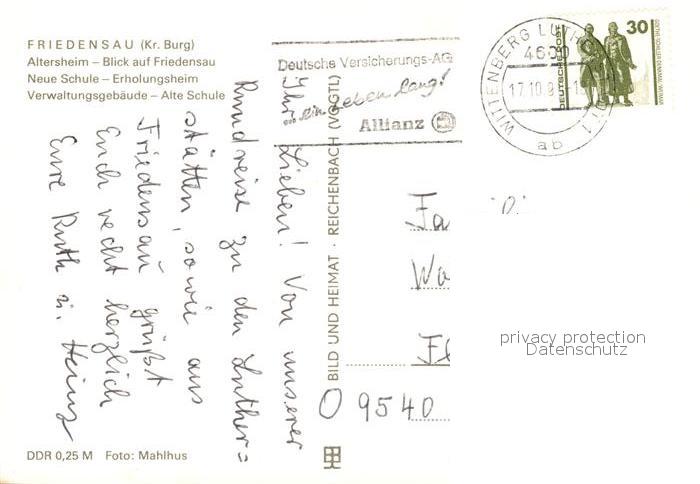 FRIEDENSAU (Kr. Burg)
Altersheim – Blick auf Friedensau
Neue Schule – Erholungsheim
Verwaltungsgebäude – Alte Schule
Ihr Lieben! Von unserer
Rundreise zu den Luther=
stätten, sowie aus
Friedensau grüßt
Euch recht herzlich
Eure Ruth u. Heinz
DDR 0,25 M Foto: Mahlhus
BILD UND HEIMAT · REICHENBACH (VOGTL)
Deutsche Versicherungs-AG
...ein Leben lang!
Allianz
WITTENBERG LUTH
4600
17.10.9
ab
DEUTSCHE POST
30
Fa
Wa
Fl
O 9540
privacy protection
Datenschutz